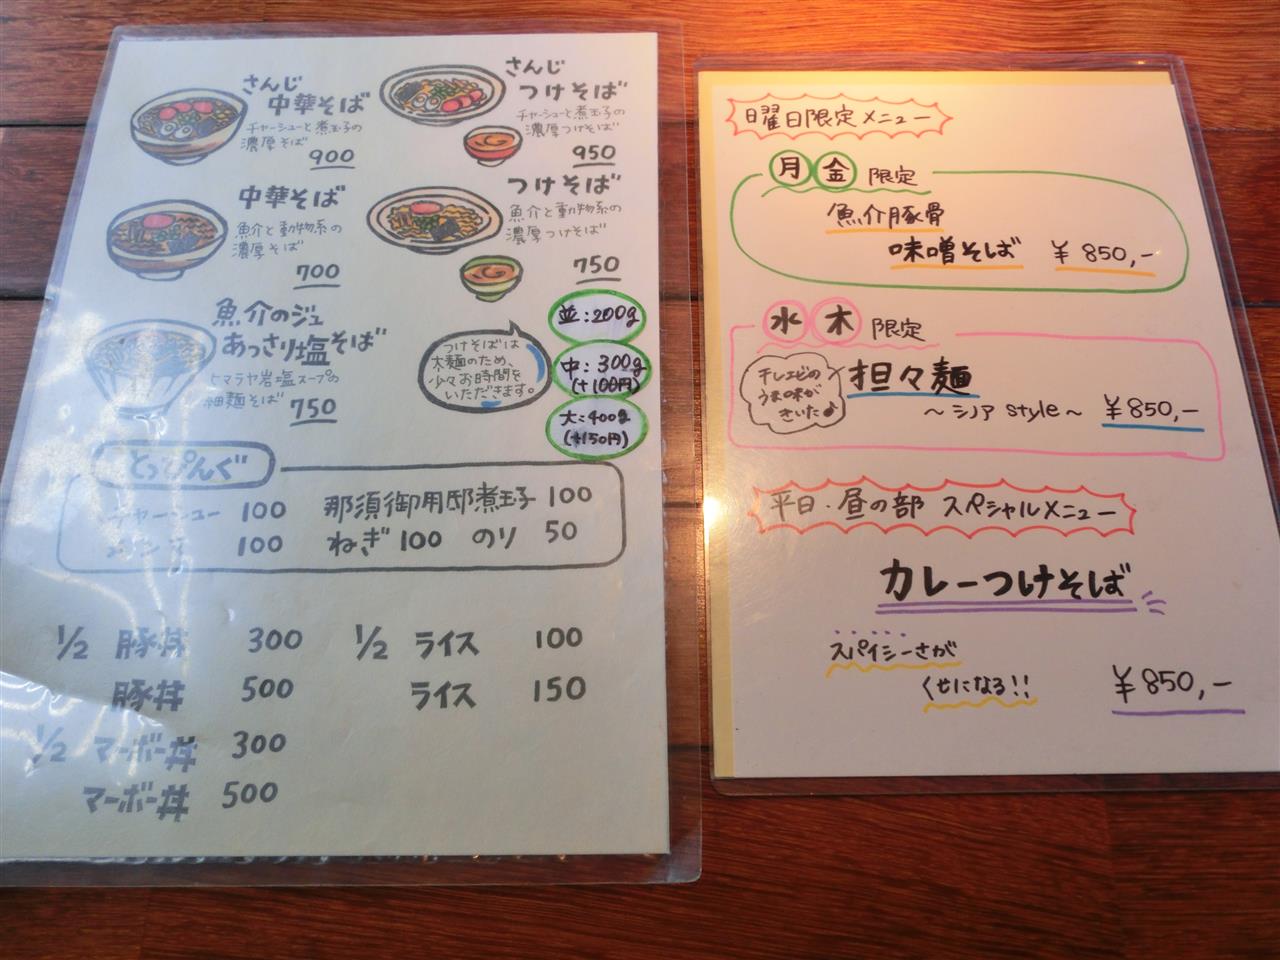 さんじ
中華そば
チャーシューと煮玉子の
濃厚そば
900
さんじ
つけそば
チャーシューと煮玉子の
濃厚つけそば
950
中華そば
魚介と動物系の
濃厚そば
700
つけそば
魚介と動物系の
濃厚つけそば
750
魚介のジュ
あっさり塩そば
ヒマラヤ岩塩スープの
細麺そば
750
つけそばは
太麺のため、
少々お時間を
いただきます。
並:200g
中:300g
(+100円)
大:400g
(+150円)
とっぴんぐ
チャーシュー 100 那須御用邸煮玉子 100
メンマ 100 ねぎ 100 のり 50
1/2 豚丼 300 1/2 ライス 100
豚丼 500 ライス 150
1/2 マーボー丼 300
マーボー丼 500
曜日限定メニュー
月 金 限定
魚介豚骨
味噌そば ¥850,-
水 木 限定
干しエビの
うま味が
きいた♪
担々麺
〜シノア style〜 ¥850,-
平日・昼の部 スペシャルメニュー
カレーつけそば
スパイシーさが
くせになる!!
¥850,-